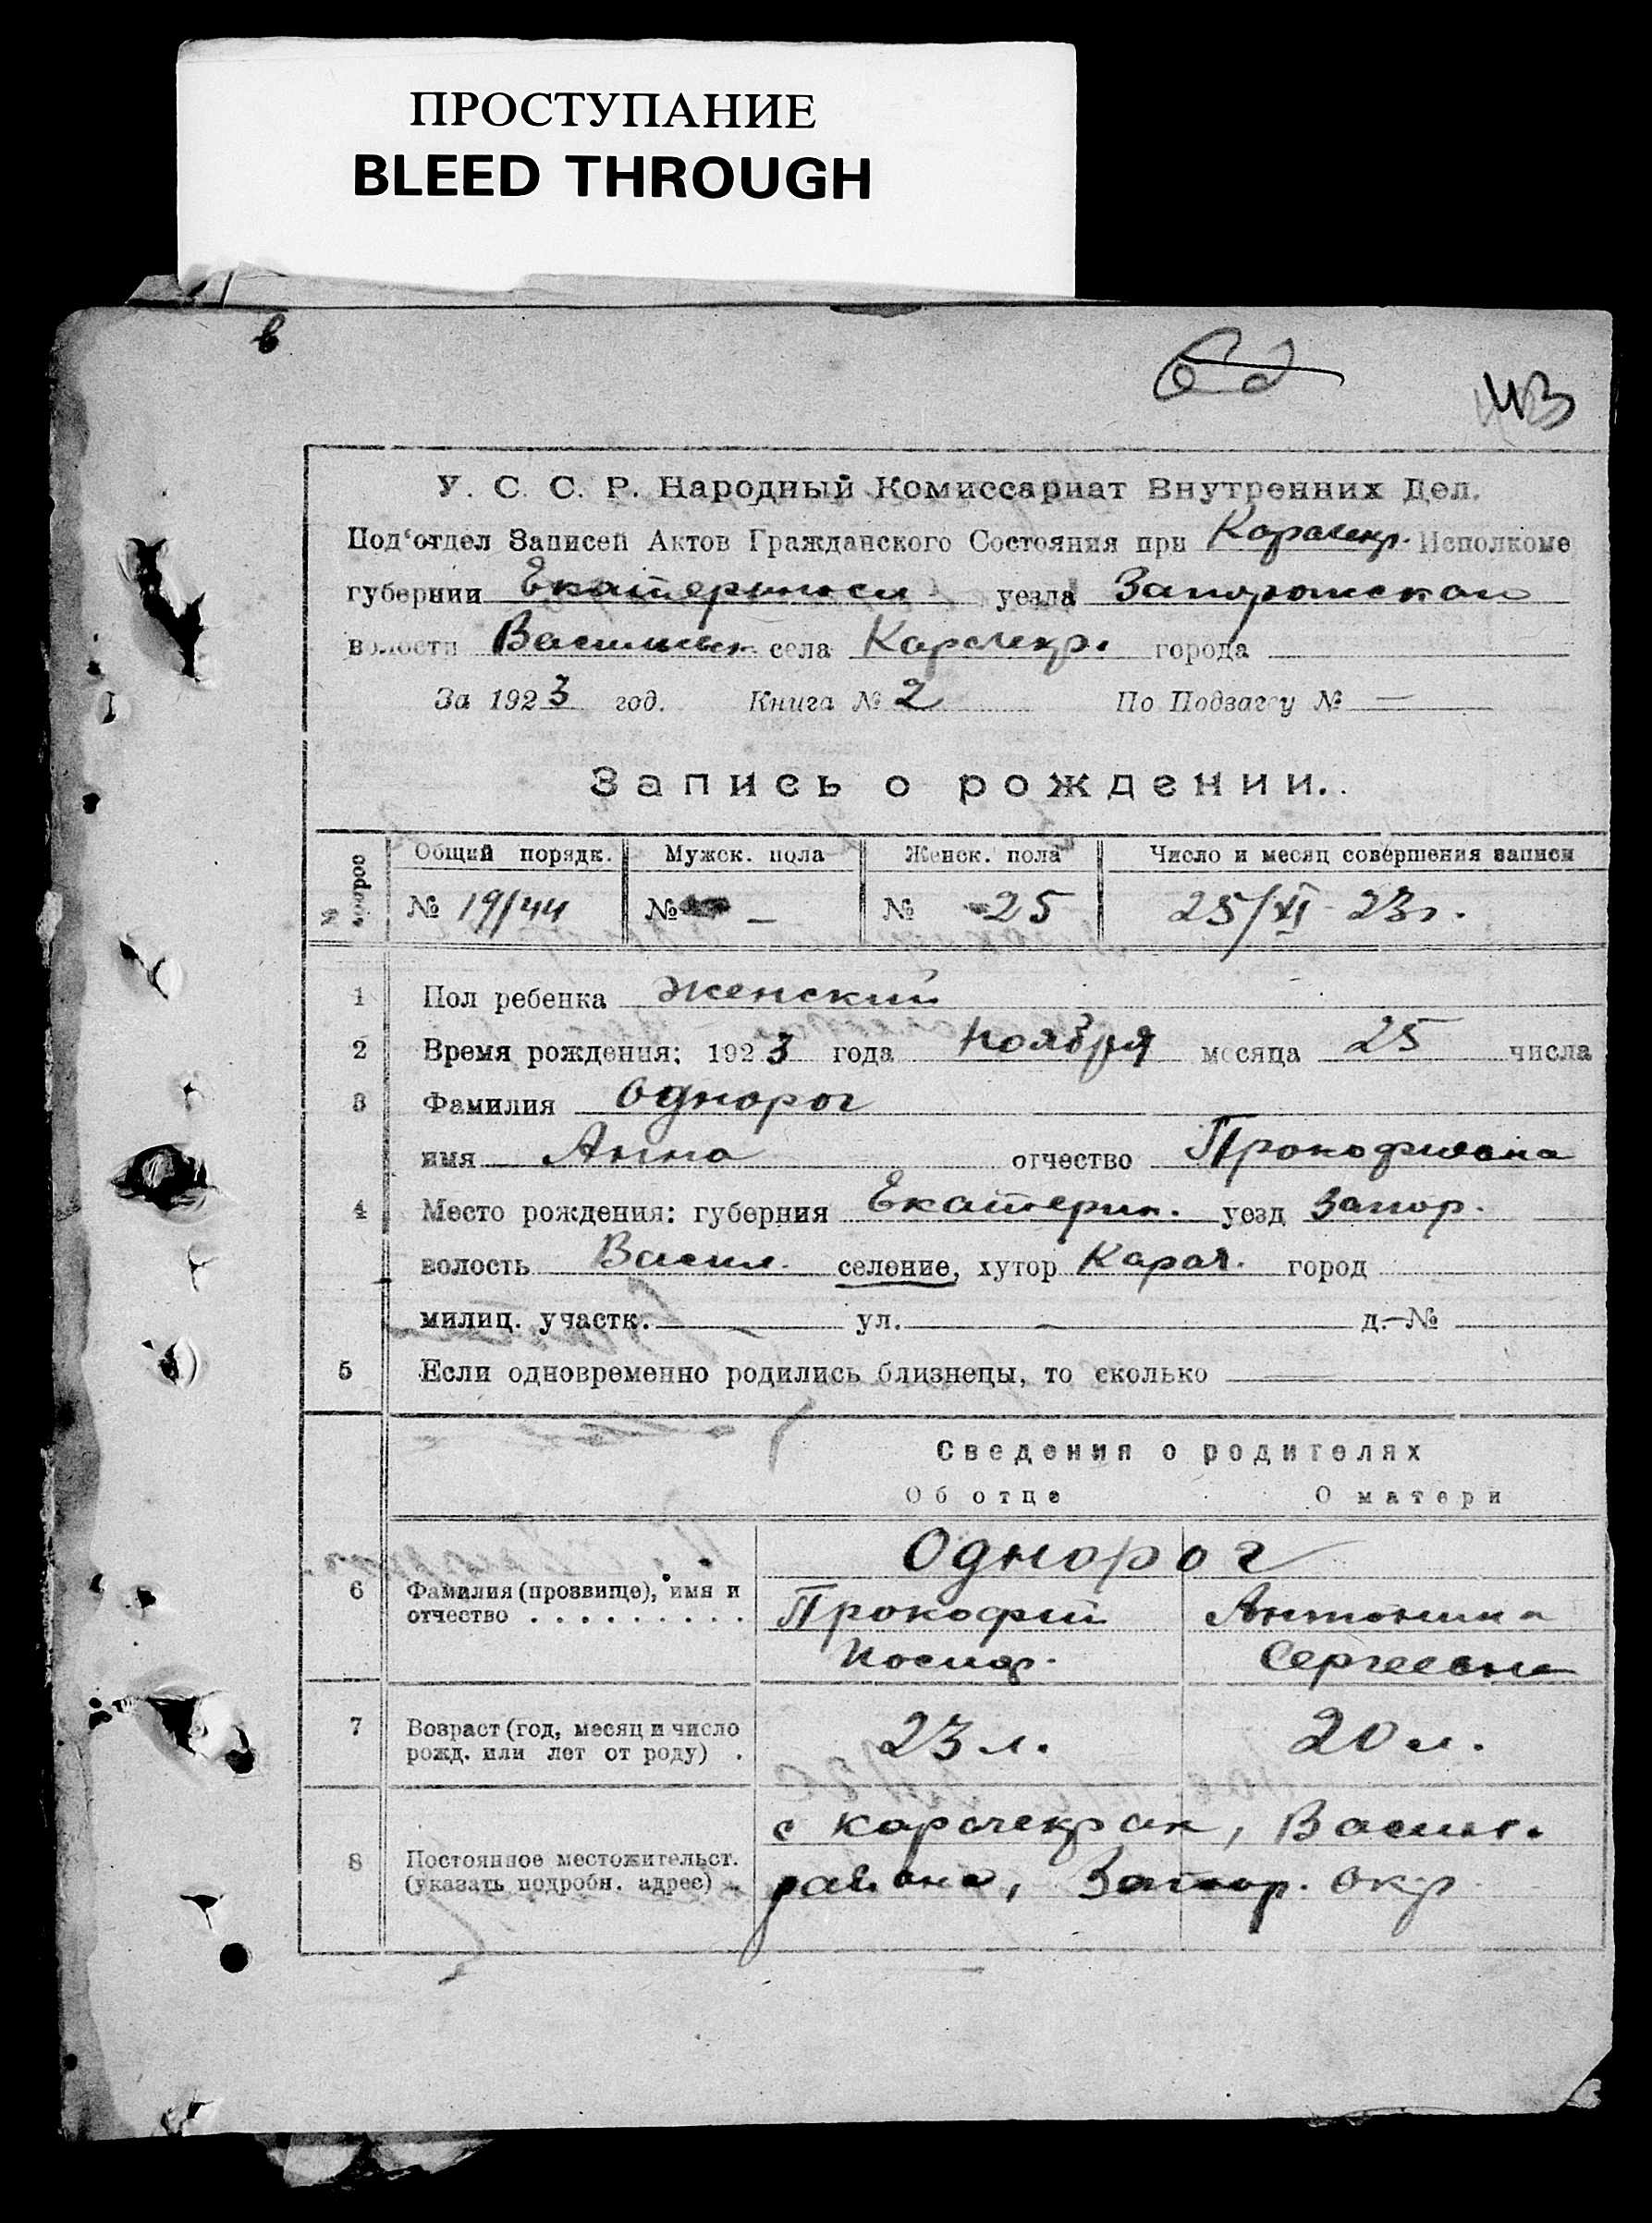 ПРОСТУПАНИЕ
BLEED THROUGH
в
62
43
У. С. С. Р. Народный Комиссариат Внутренних Дел.
Под'отдел Записей Актов Гражданского Состояния при Карачекр. Исполкоме
губернии Екатериносл уезда Запорожского
волости Васильевк. села Карачекр. города
За 1923 год. Книга № 2 По Подзагсу № —
Запись о рождении.
№ вопрос Общий порядк. Мужск. пола Женск. пола Число и месяц совершения записи
№ 19/44 № — № 25 25/XI 23 г.
1 Пол ребенка женский
2 Время рождения: 1923 года Ноября месяца 25 числа
3 Фамилия Однорог
имя Анна отчество Прокофиевна
4 Место рождения: губерния Екатерин. уезд Запор.
волость Васил. селение, хутор Карач. город
милиц. участк. — ул. — д. №
5 Если одновременно родились близнецы, то сколько —
Сведения о родителях
Об отце О матери
Однорог
6 Фамилия (прозвище), имя и Прокофий Антонина
отчество . . . . . . . . . Иосиф. Сергеевна
7 Возраст (год, месяц и число 23 л. 20 л.
рожд. или лет от роду) .
с Карачекрак, Васил.
8 Постоянное местожительст. района, Запор. Окр.
(указать подробн. адрес) .